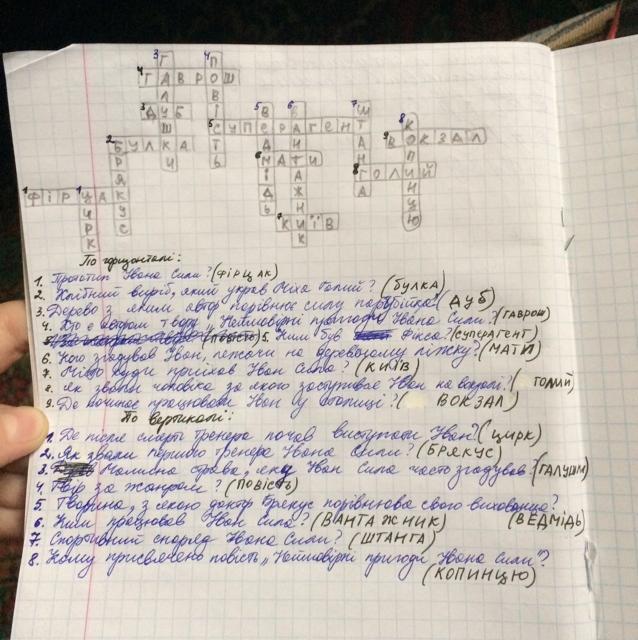 ГАВРОШ
ДУБ
СУПЕРАГЕНТ
ВОКЗАЛ
БУЛКА
МАТИ
ГОЛИЙ
ФІРЦАК
КИЇВ
По горизонталі:
1. Прототип Івана Сили? (ФІРЦАК)
2. Хлібний виріб, який украв Міха Голий? (БУЛКА)
3. Дерево з яким автор порівнює силу парубійка? (ДУБ)
4. Хто є автором твору „Неймовірні пригоди Івана Сили"? (ГАВРОШ)
5. Ким був Фікса? (СУПЕРАГЕНТ)
6. Кого згадував Іван, лежачи на дерев'яному ліжку? (МАТИ)
7. Місто куди приїхав Іван Сила? (КИЇВ)
8. Як звали чоловіка за якого заступився Іван на вокзалі? (ГОЛИЙ)
9. Де починає працювати Іван у столиці? (ВОКЗАЛ)
По вертикалі:
1. Де після смерті тренера почав виступати Іван? (ЦИРК)
2. Як звали першого тренера Івана Сили? (БРЯКУС)
3. Мамина страва, яку Іван Сила часто згадував? (ГАЛУШКИ)
4. Твір за жанром? (ПОВІСТЬ)
5. Тварина, з якою доктор Брякус порівнював свого вихованця?
(ВЕДМІДЬ)
6. Ким працював Іван Сила? (ВАНТАЖНИК)
7. Спортивний снаряд Івана Сили? (ШТАНГА)
8. Кому присвячено повість „Неймовірні пригоди Івана Сили"?
(КОПИНЦЮ)